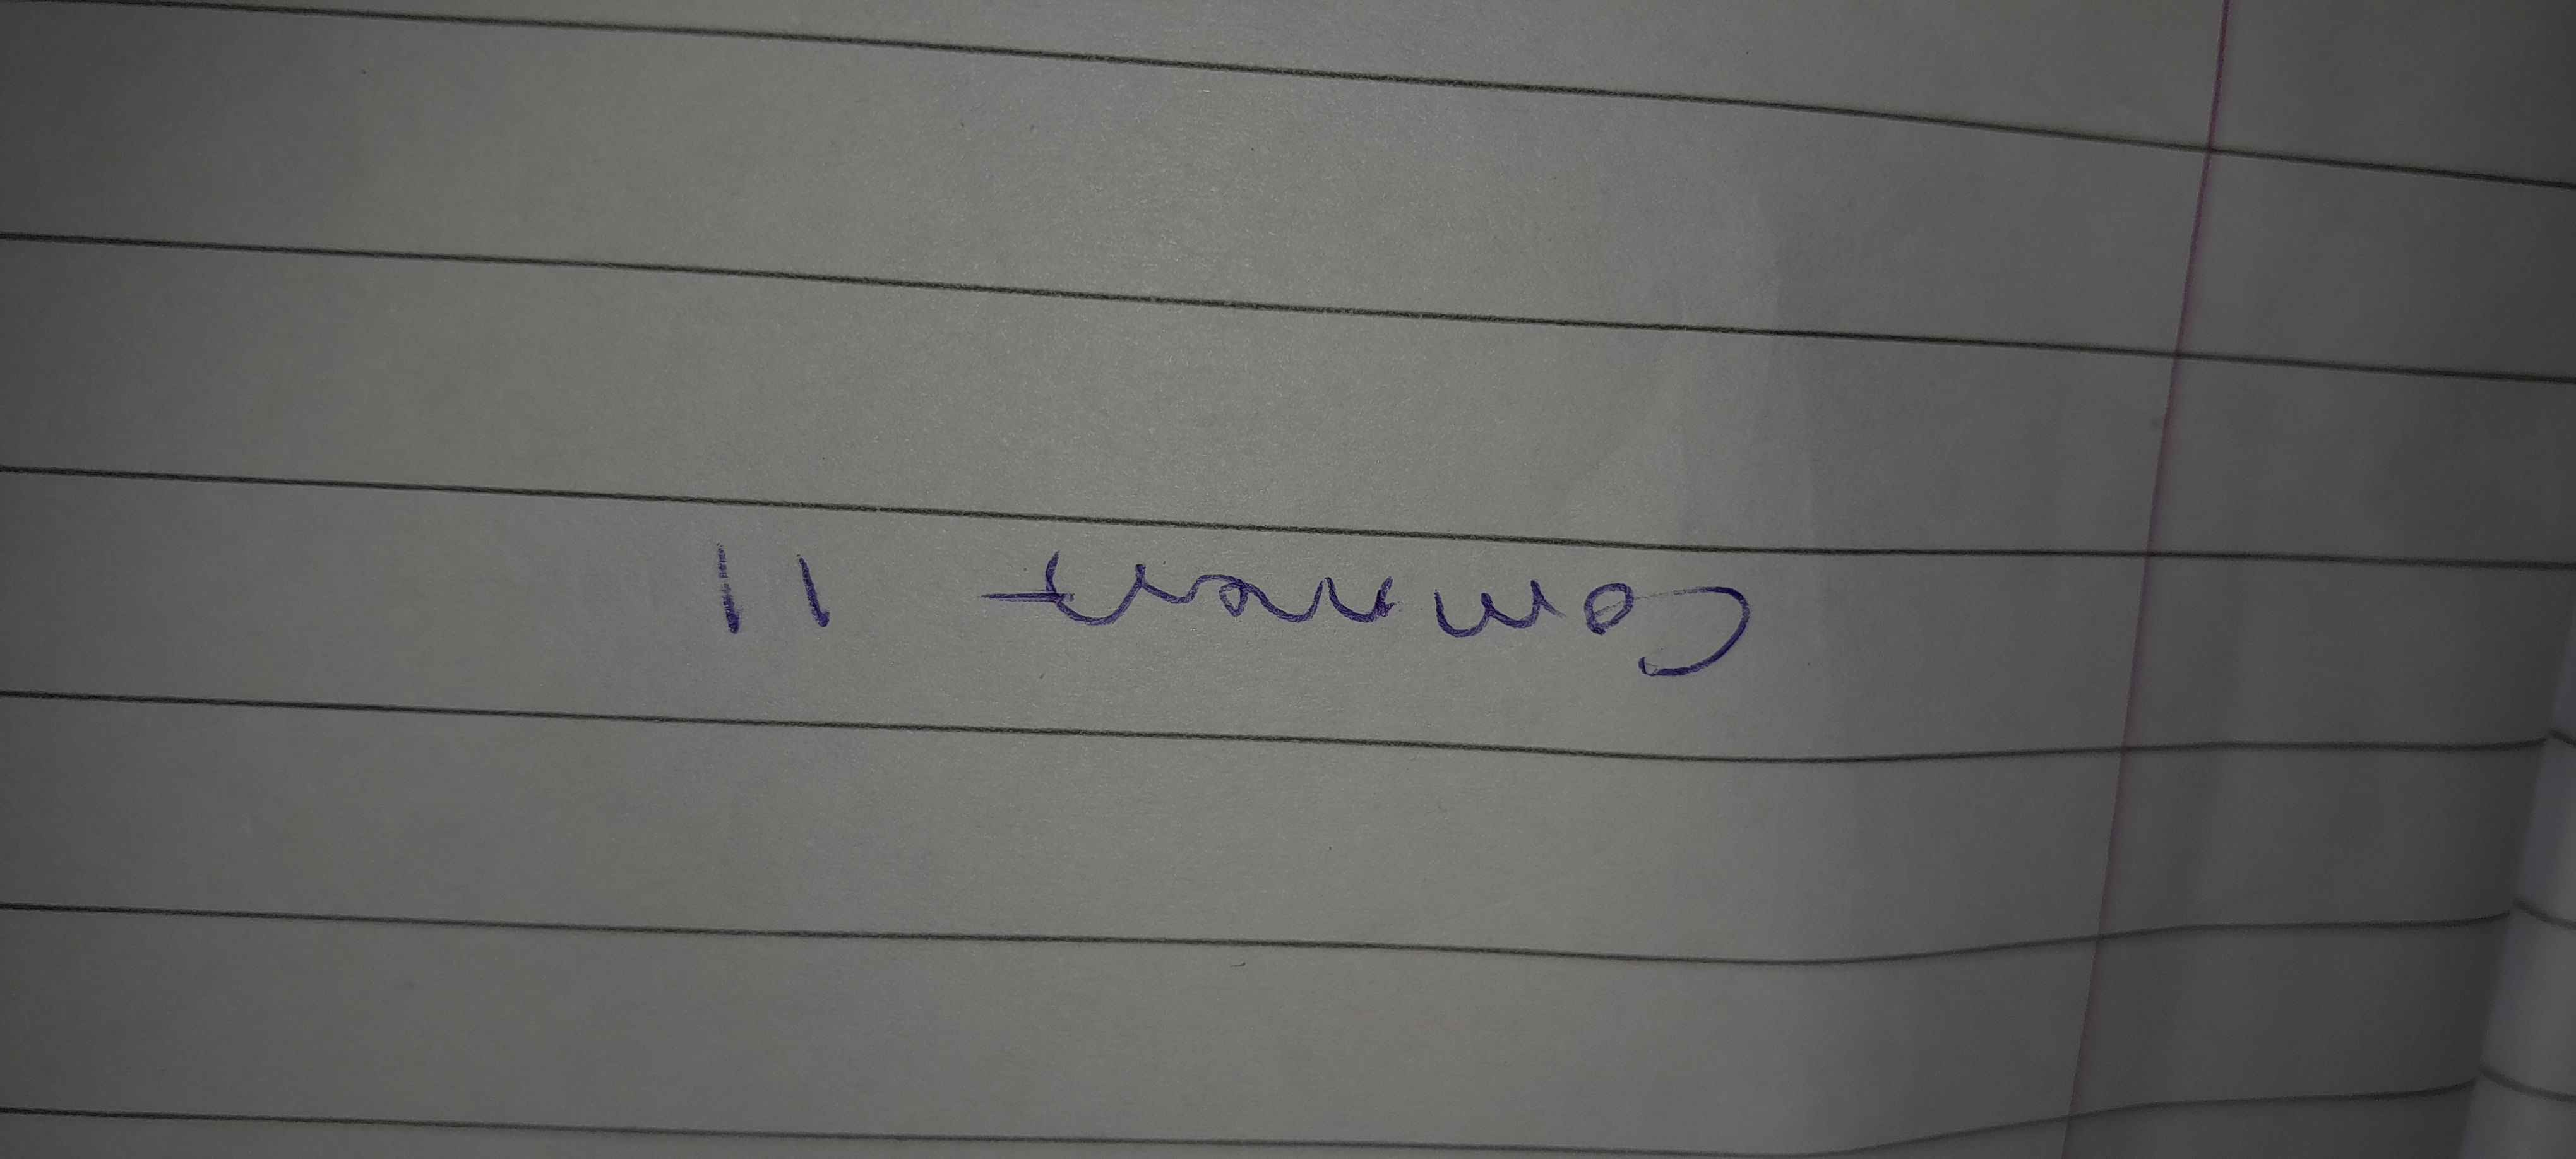 Comment 11